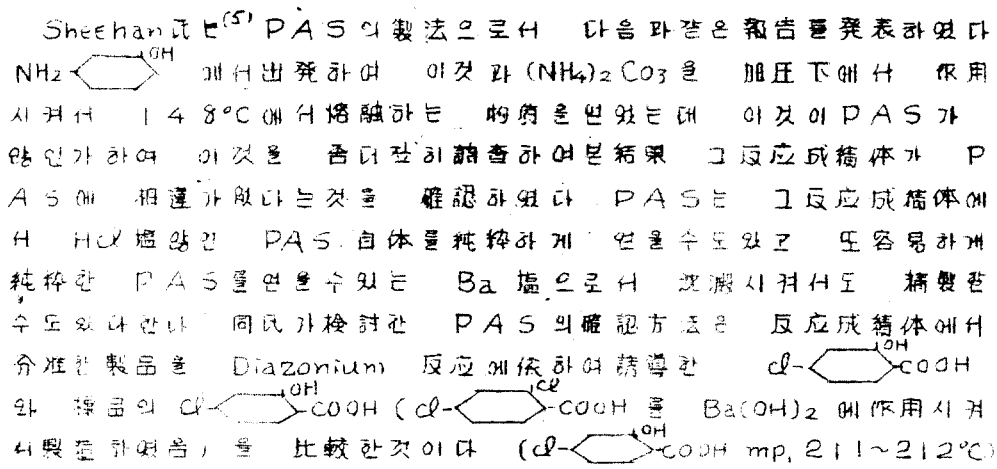 Sheehan氏는(5) PAS의 製法으로서 다음과 같은 報告를 発表하였다
NH2-OH 에서 出発하여 이것과 (NH4)2CO3을 加圧下에서 作用
시켜서 148°C에서 熔融하는 物質을 얻었는데 이것이 PAS가
않인가하여 이것을 좀더 깊이 調査하여본 結果 그 反応成績体가 P
AS에 相違가 없다는것을 確認하였다 PAS는 그 反応成績体에
서 HCl 塩않인 PAS 自体를 純粋하게 얻을수도 있고 또 容易하게
純粋한 PAS를 얻을수 있는 Ba 塩으로서 沈澱시켜서도 精製할
수도 있다한다 同氏가 検討한 PAS의 確認方法은 反応成績体에서
分離한 製品을 Diazonium 反応에 依하여 誘導한 Cl-OH-COOH
와 標品의 Cl-OH-COOH (Cl-Cl-COOH 를 Ba(OH)2 에 作用시켜
서 製造하였음) 을 比較한것이다 (Cl-OH-COOH mp, 211~212°C)